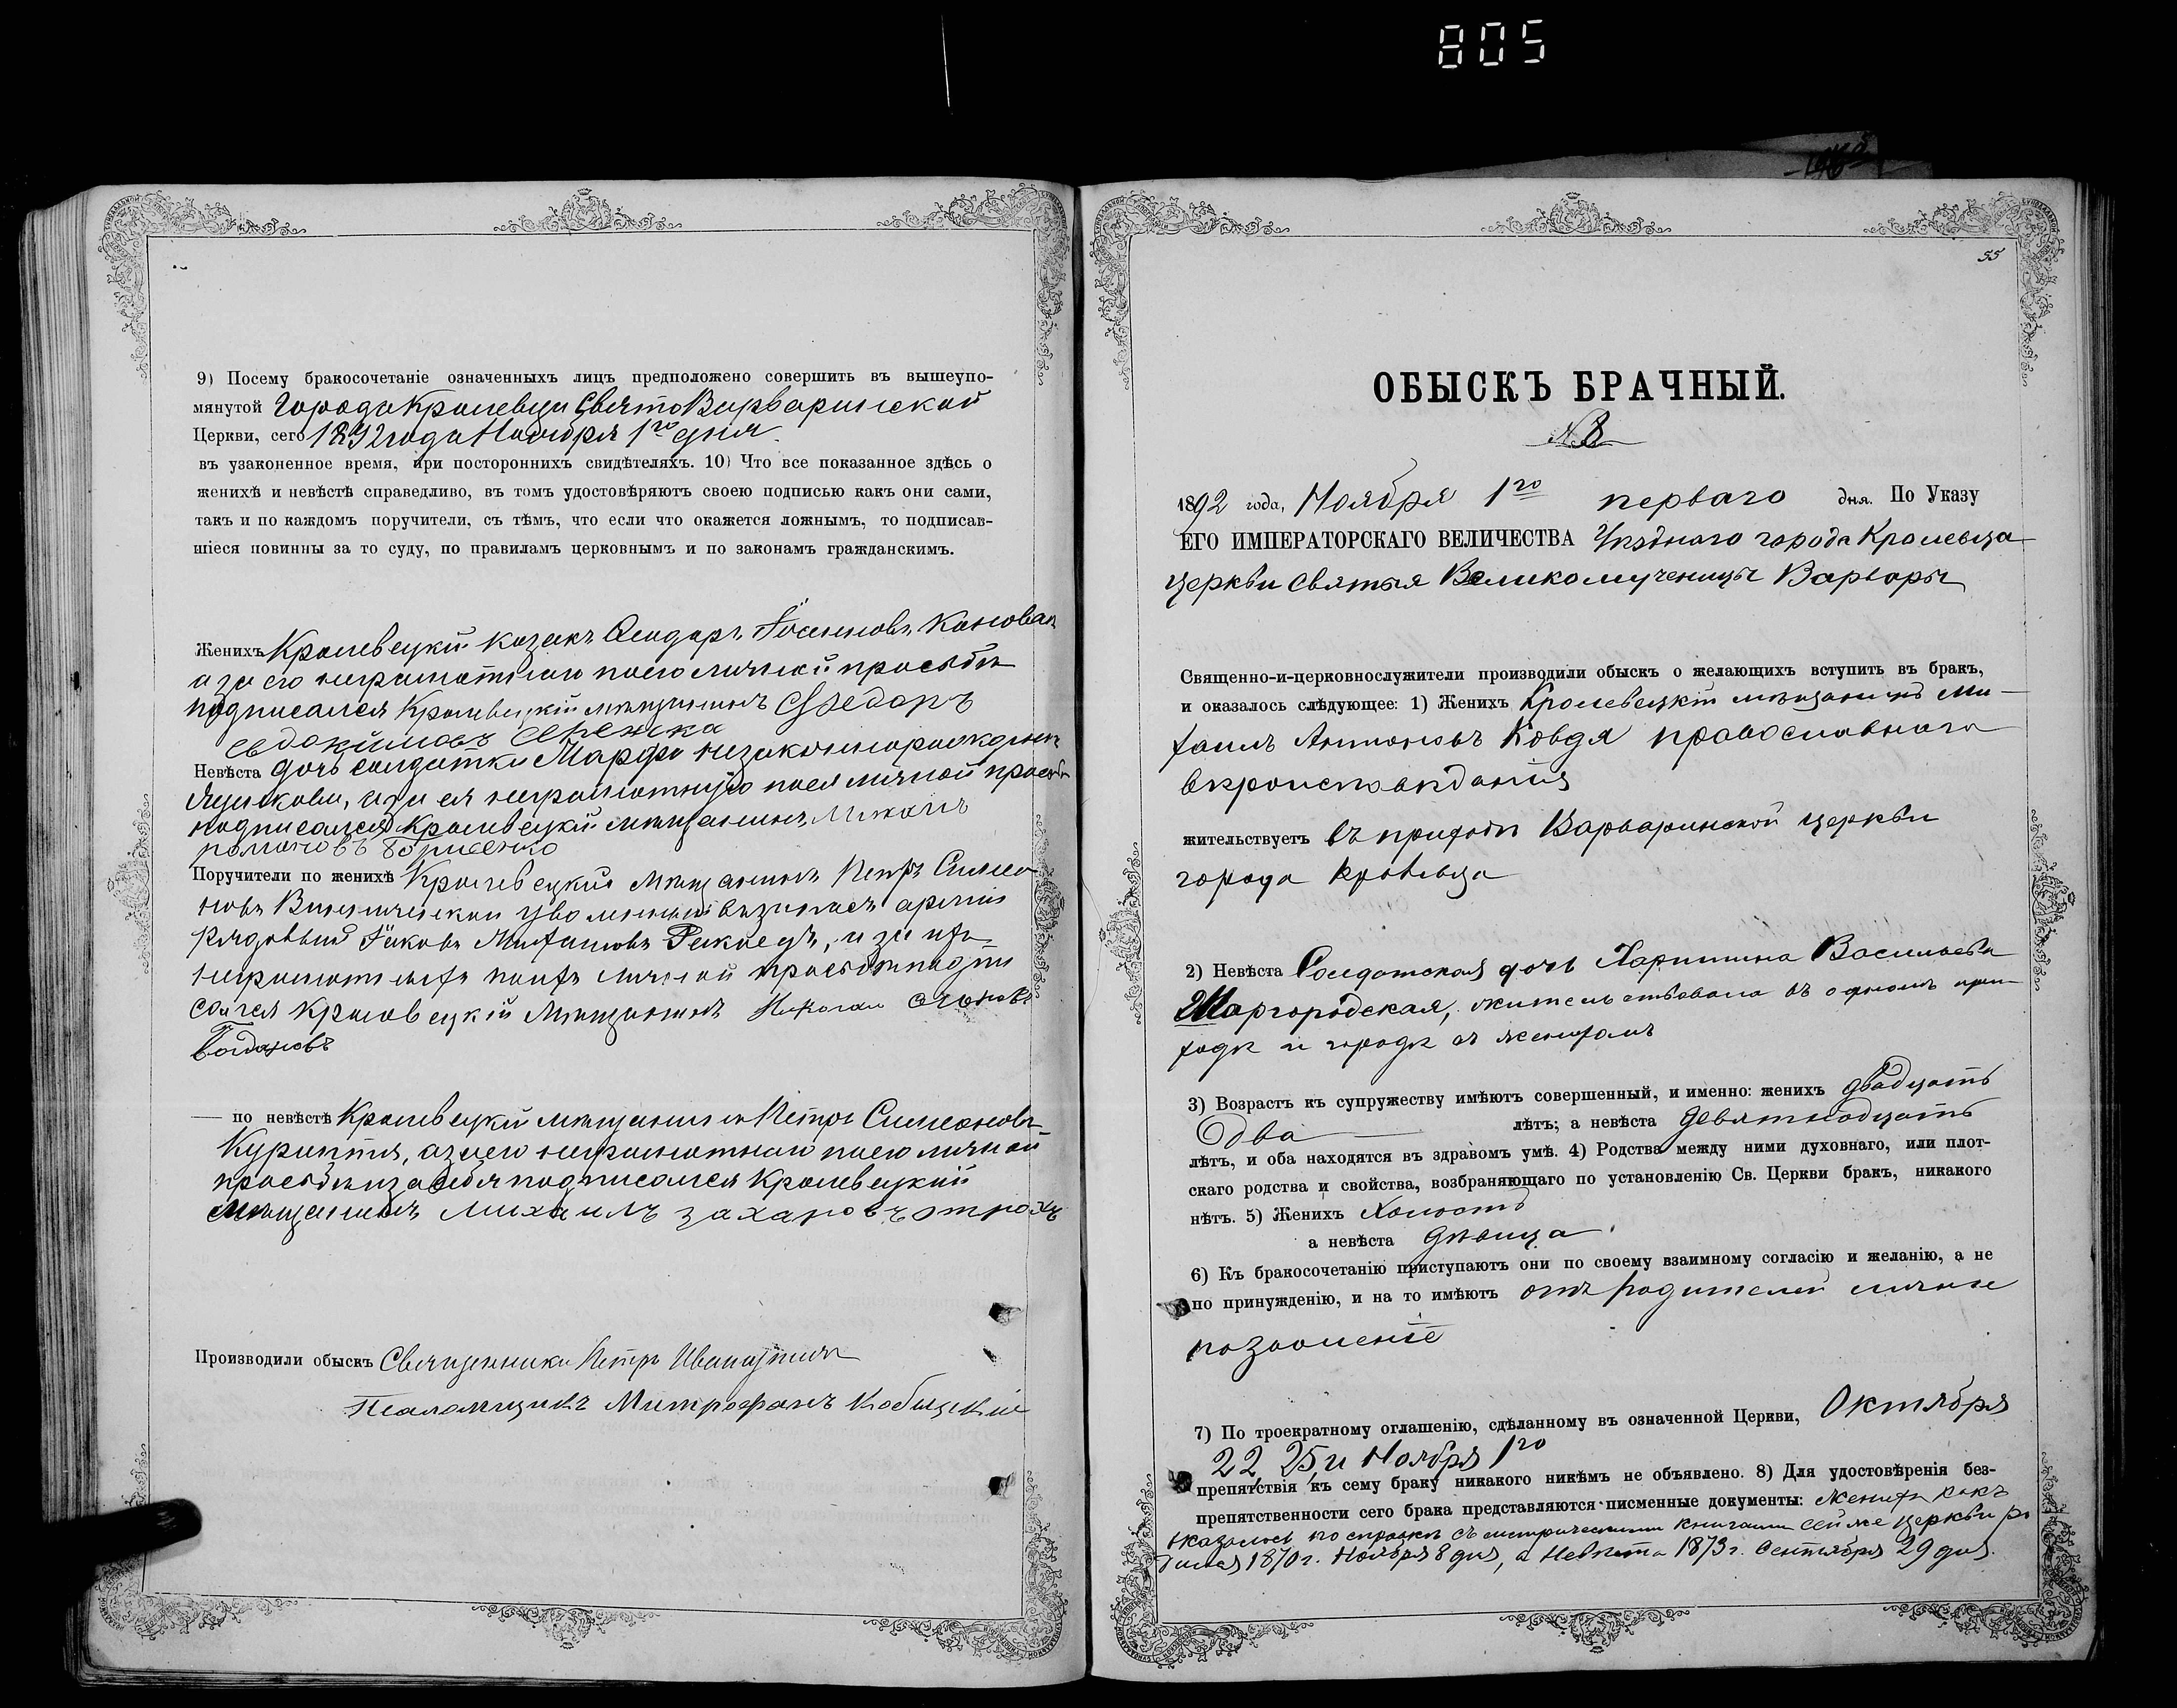 805
9) Посему бракосочетаніе означенныхъ лицъ предположено совершить въ вышеупо-
мянутой Города Кролевца Свято Варваринской
Церкви, сего 1892 года Ноября 1го дня
въ узаконенное время, при постороннихъ свидѣтеляхъ. 10) Что все показанное здѣсь о
женихѣ и невѣстѣ справедливо, въ томъ удостовѣряютъ своею подписью какъ они сами,
такъ и по каждомъ поручители, съ тѣмъ, что если что окажется ложнымъ, то подписав-
шіеся повинны за то суду, по правиламъ церковнымъ и по законамъ гражданскимъ.
Женихъ Кролевецкій козакъ
а за его неграмотнаго по его личной просьбѣ
подписался Кролевецкій мѣщанинъ Федоръ
Евдокимовъ
Невѣста дочь солдатки Марфа незаконнорожденн
а за ея неграмотную по ея личной просьбѣ
подписался Кролевецкій мѣщанинъ
романовъ
Поручители по женихѣ Кролевецкій мѣщанинъ Петръ Симео
новъ уволенный въ запасъ арміи
Рядовый Іаковъ Михаиловъ а за ихъ
неграмотныхъ по ихъ личной просьбѣ подпи
сался Кролевецкій Мѣщанинъ Николай
Богдановъ
— по невѣстѣ Кролевецкій мѣщанинъ Петръ Симеоновъ
а за его неграмотнаго по его личной
просьбѣ и за себя подписался Кролевецкій
Мѣщанинъ михаилъ захаровъ
Производили обыскъ Священникъ Петръ
Псаломщикъ Митрофанъ Кобыцкій
55
ОБЫСКЪ БРАЧНЫЙ.
№ 8
1892 года, Ноября 1го перваго дня. По Указу
ЕГО ИМПЕРАТОРСКАГО ВЕЛИЧЕСТВА Уѣзднаго города Кролевца
церкви Святыя Великомученицы Варвары
Священно-и-церковнослужители производили обыскъ о желающихъ вступить въ бракъ,
и оказалось слѣдующее: 1) Женихъ Кролевецкій мѣщанинъ Ми-
хаилъ Антоновъ Ковдя православнаго
вѣроисповѣданія
жительствуетъ въ приходѣ Варваринской церкви
города Кролевца
2) Невѣста Солдатская дочь Харитина Васильева
Шаргородская, жительствовала въ одномъ при-
ходѣ и городѣ съ женихомъ
3) Возрастъ къ супружеству имѣютъ совершенный, и именно: женихъ двадцать
два лѣтъ; а невѣста девятнадцать
лѣтъ, и оба находятся въ здравомъ умѣ. 4) Родства между ними духовнаго, или плот-
скаго родства и свойства, возбраняющаго по установленію Св. Церкви бракъ, никакого
нѣтъ. 5) Женихъ Холостъ
а невѣста дѣвица
6) Къ бракосочетанію приступаютъ они по своему взаимному согласію и желанію, а не
по принужденію, и на то имѣютъ отъ родителей личное
позволеніе
7) По троекратному оглашенію, сдѣланному въ означенной Церкви, Октября
22, 25 и Ноября 1го
препятствія къ сему браку никакого никѣмъ не объявлено. 8) Для удостовѣренія без-
препятственности сего брака представляются писменные документы: Женихъ какъ
оказалось по справкѣ съ метрическими книгами сей же церкви ро
дился 1870 г. Ноября 8 дня, а Невѣста 1873 г. Сентября 29 дня.